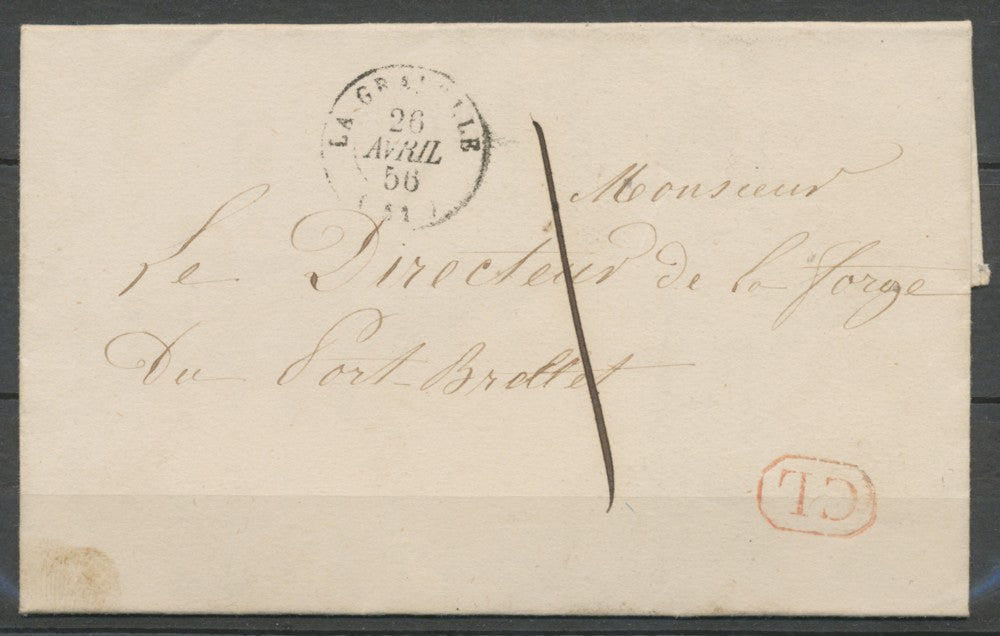 LA GRAVELLE
26
AVRIL
56
Monsieur
Le Directeur de la forge
Du Port-Brellet
CL